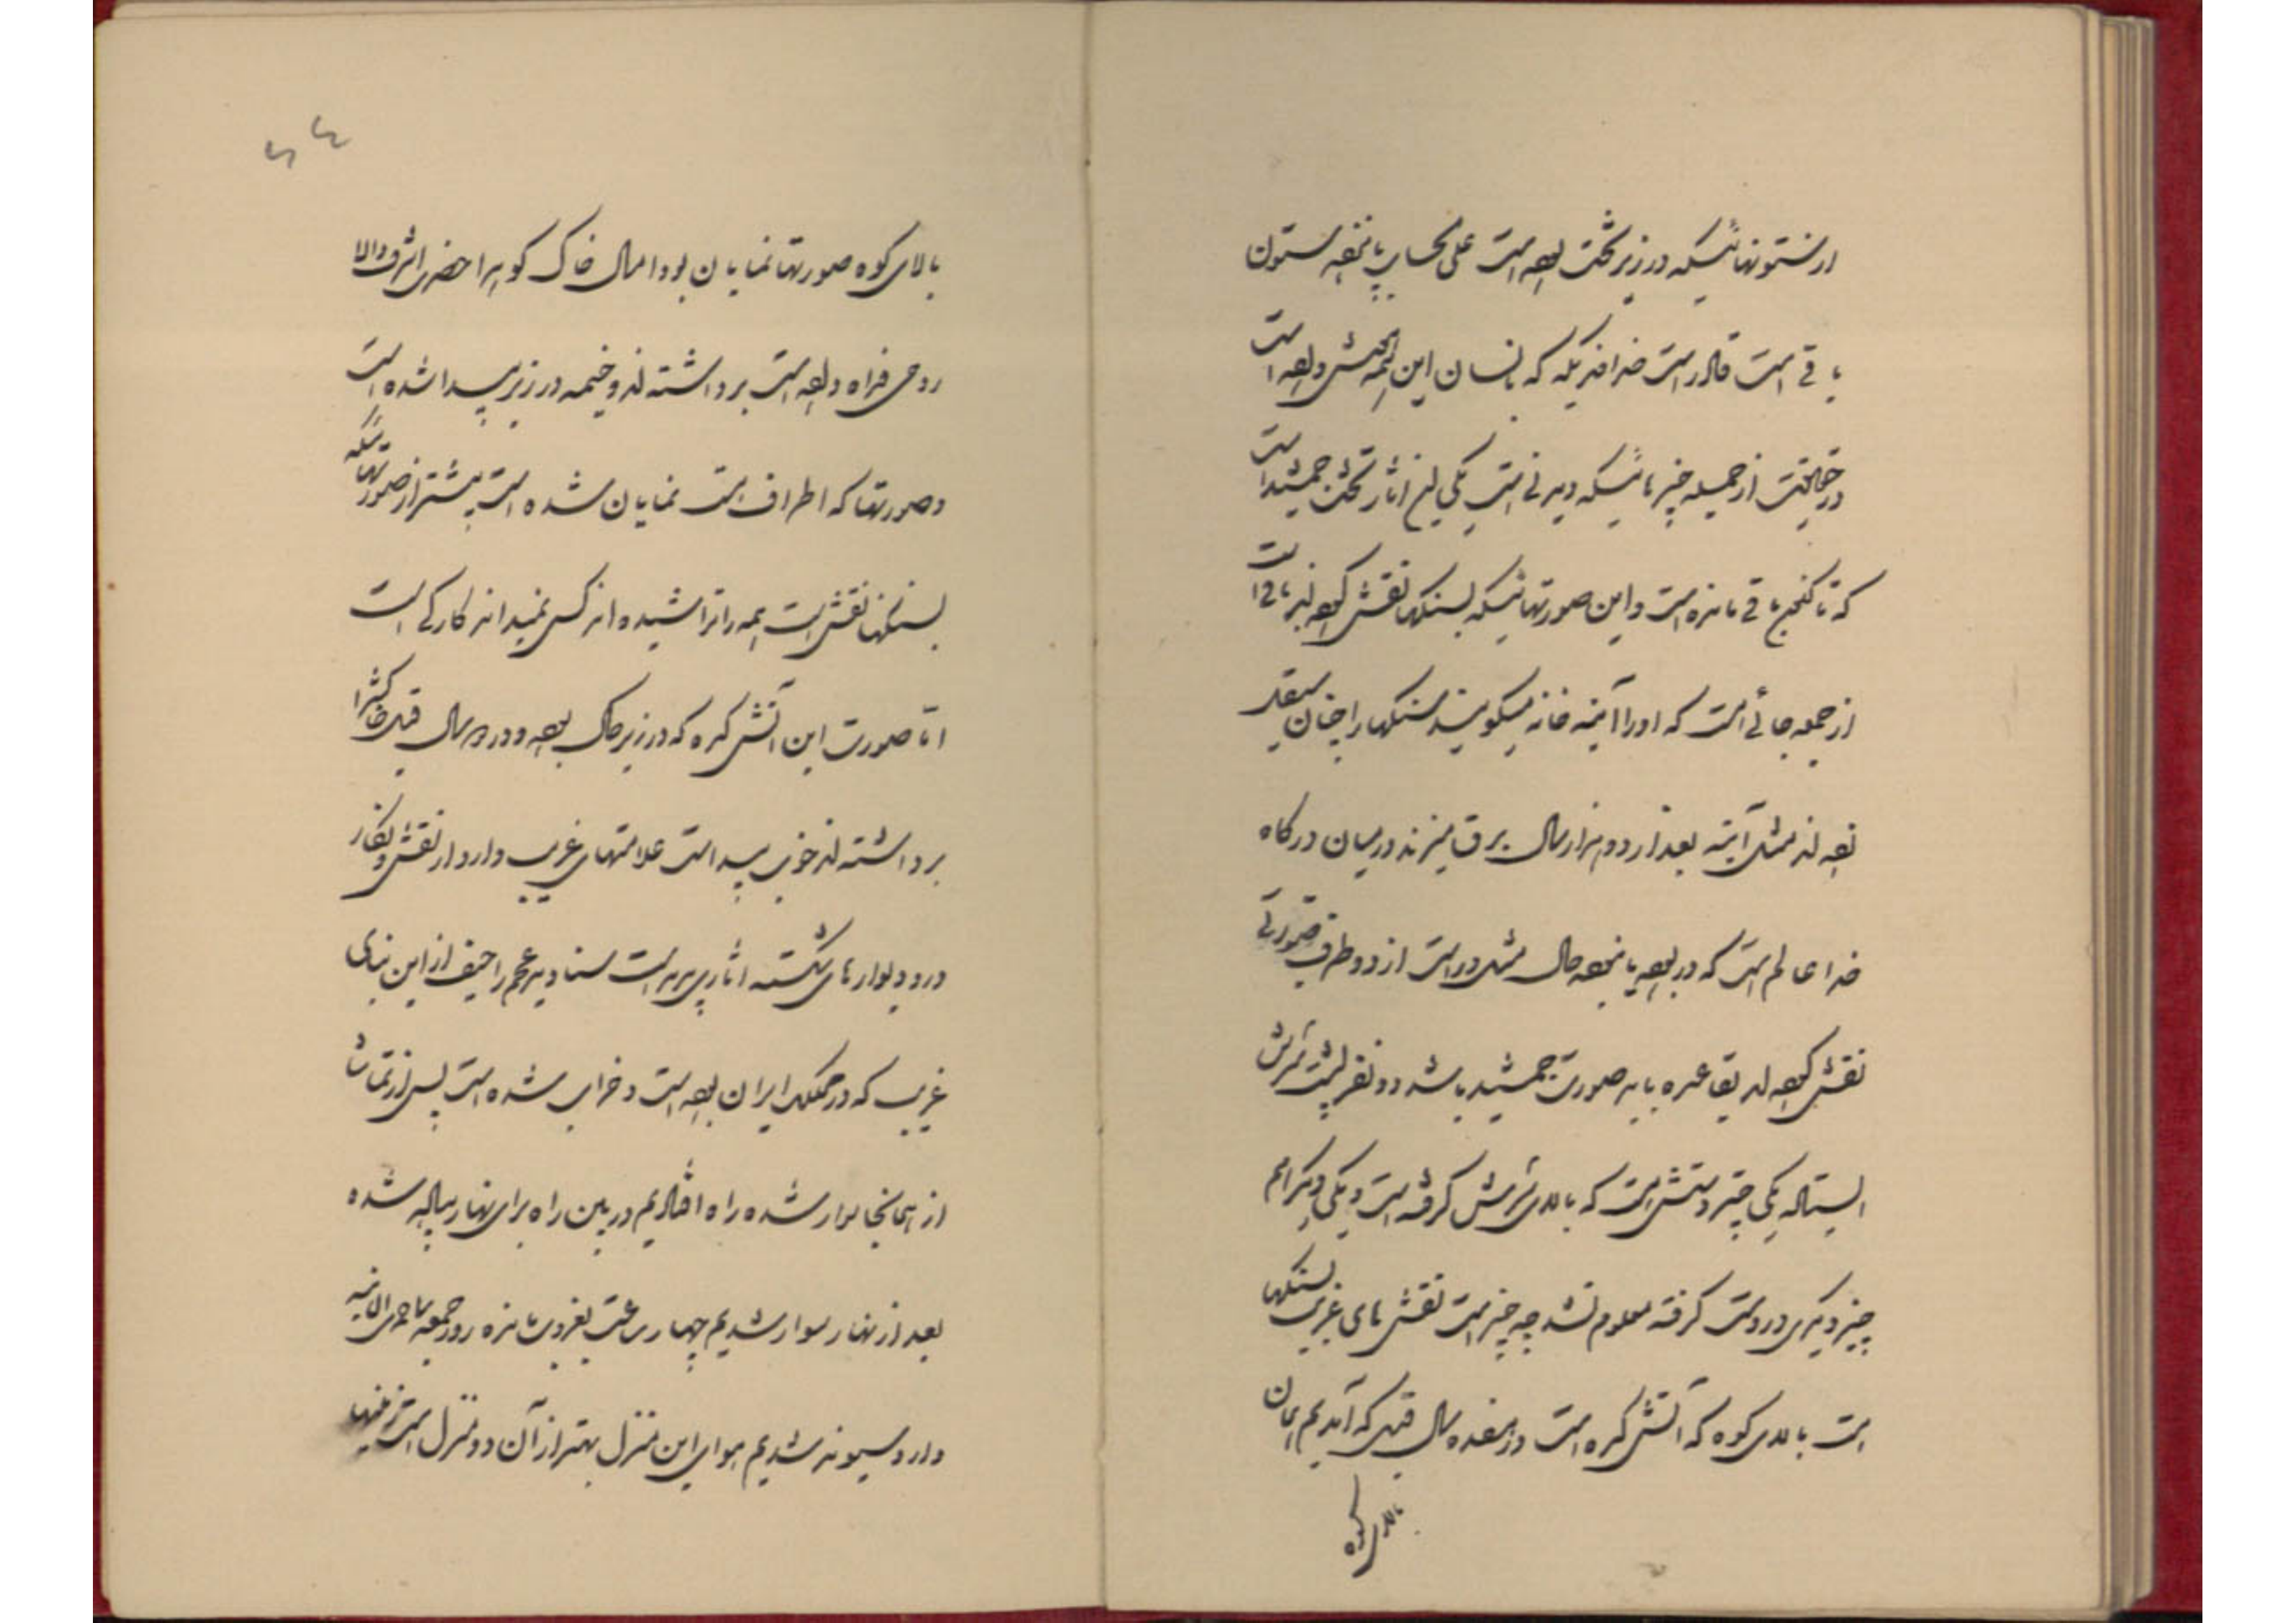 از ستونهائیکه در زیر تخت بوده است علی الحساب پانزده ستون
باقی است قادر است خداوندیکه که بانسان این همه بخشش داده است
در حقیقت از جمله چیزهائیکه دیدنی است یکی این آثار تخت جمشید است
که تا کنون باقی مانده است و این صورتهائیکه بسنگها نقش کرده‌اند باقی است
از جمله جائی است که او را آینه خانه میگویند سنگها را چنان صیقل
نموده‌اند مثل آینه بعد از دو هزار سال برق میزند در میان درگاه
خدا عالم است که در بوده یا نبوده حال مثل در است از دو طرف صورتی
نقش کرده‌اند بقاعده باید صورت جمشید باشد دو نفر پشت سرش
ایستاده یکی چتر دستش است که بالای سرش گرفته است و یکی دیگر هم
چیز دیگری در دست گرفته معلوم نشد چه چیز است نقش‌های غریب بسنگها
است بالای کوه که آتش کده است در هفده سال قبل که آمدیم همان
بالای کوه
۶۶
بالای کوه صورتها نمایان بود امسال خاک کوه را حضرت اشرف والا
روحی فداه داده است برداشته‌اند و خیمه در زیر پیدا شده است
و صورتها که اطراف است نمایان شده است بیشتر از صورتهائیکه
بسنگها نقش است همه را تراشیده‌اند کس نمیداند کار کی است
اما صورت این آتش کده که در زیر خاک بوده و در ده سال قبل خاکش را
برداشته‌اند خوب پیدا است علامتهای غریب دارد از نقش و نگار
در و دیوارهای شکسته آثار پدید است صنادید عجم را حیف از این بنای
غریب که در مملکت ایران بوده است و خراب شده است پس از تماشا
از همانجا سوار شده راه افتادیم در بین راه برای نهار پیاده شده
بعد از نهار سوار شدیم چهار ساعت بغروب مانده روز جمعه ۹ جمادی الثانیه
وارد سیوند شدیم هوای این منزل بهتر از آن دو منزل است